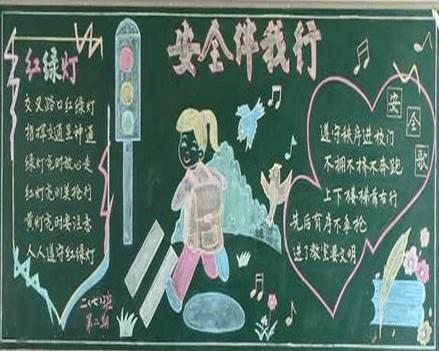 安全伴我行
红绿灯
交叉路口红绿灯
指挥交通显神通
绿灯亮时放心走
红灯亮别莫抢行
黄灯亮时要注意
人人遵守红绿灯
二(七)班
第二期
安全歌
遵守秩序进校门
不拥不挤不奔跑
上下楼梯靠右行
先后有序不争抢
进了教室要文明